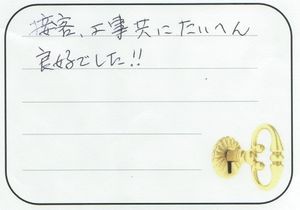 接客、工事共にたいへん
良好でした!!